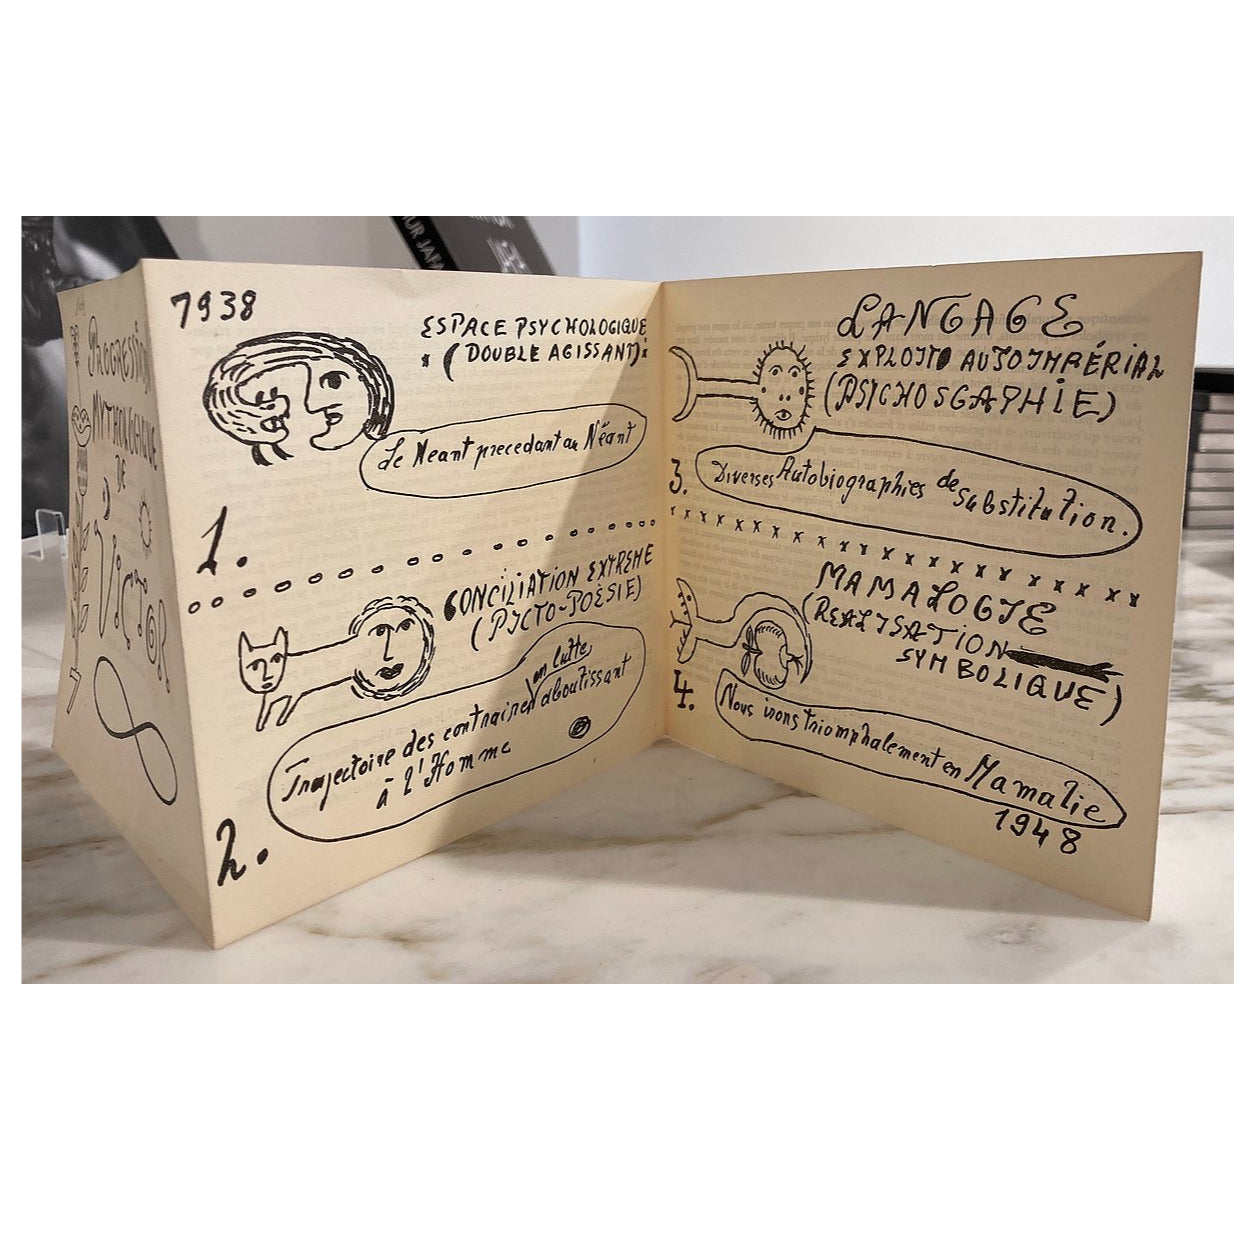 PROGRESSION
MYTHOLOGIQUE
DE
VICTOR
7938
ESPACE PSYCHOLOGIQUE
(DOUBLE AGISSANT)
Le Neant precedant au Néant
1.
CONCILIATION EXTREME
(PICTO-POÈSIE)
en lutte
Trajectoire des contraires aboutissant
à l'Homme
2.
LANGAGE
EXPLOITO AUTOIMPÉRIAL
(PSICHOSGAPHIE)
3.
Diverses Autobiographies de Substitution.
MAMALOGIE
(REALISATION
SYMBOLIQUE)
4.
Nous irons triomphalement en Mamalie
1948
UR JAPA